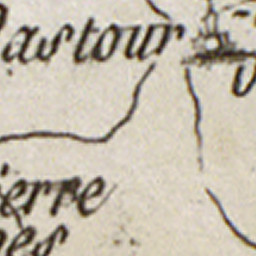 astour
ierre
es